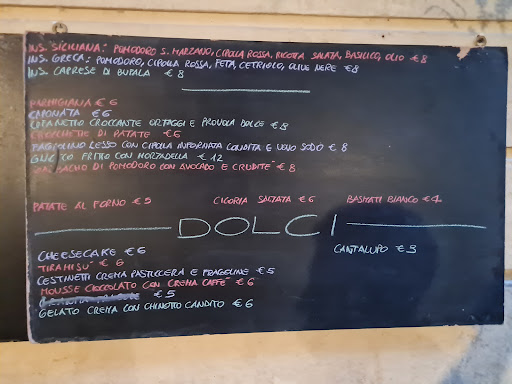 INS. SICILIANA: POMODORO S. MARZANO, CIPOLLA ROSSA, RICOTTA SALATA, BASILICO, OLIO €8
INS. GRECA: POMODORO, CIPOLLA ROSSA, FETA, CETRIOLO, OLIVE NERE €8
INS CAPRESE DI BUFALA €8
PARMIGIANA € 6
CAPONATA € 6
COFANETTO CROCCANTE ORTAGGI E PROVOLA DOLCE €8
CROCCHETTE DI PATATE €6
FAGIOLINO LESSO CON CIPOLLA INFORNATA CONDITA E UOVO SODO € 8
FRITTO CON MORTADELLA € 12
DI POMODORO CON AVOCADO E CRUDITÉ €8
PATATE AL FORNO €5 CICORIA SALTATA €6 BASMATI BIANCO €4
DOLCI
CHEESECAKE €6 CANTALUPO €5
TIRAMISU' € 6
CESTINETTI CREMA PASTICCERA E FRAGOLINE €5
MOUSSE CIOCCOLATO CON CREMA CAFFE' €6
€5
GELATO CREMA CON CHINOTTO CANDITO €6